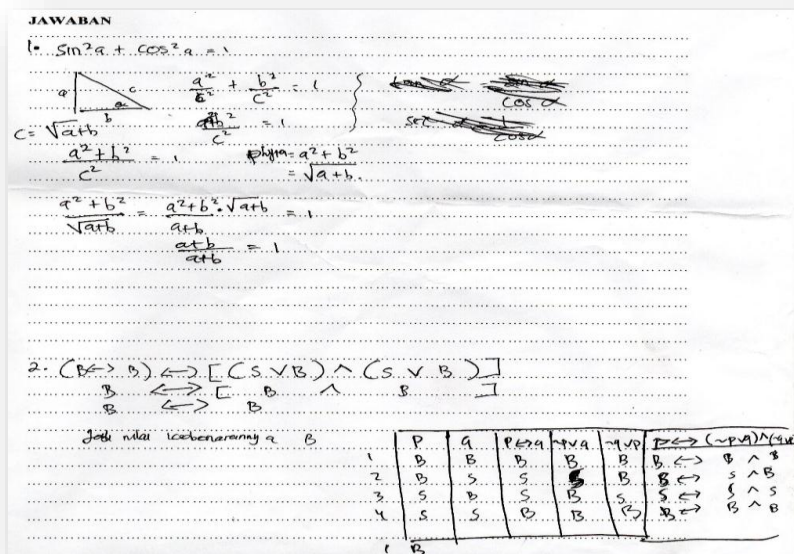 JAWABAN
1. sin²a + cos²a = 1
a c b
a²/c² + b²/c² = 1
a²+b²/c² = 1
c = √a+b
a²+b²/c² = 1
phyta = a²+b²
= √a+b.
a²+b²/√a+b = a²+b².√a+b/a+b = 1
a+b/a+b = 1
2. (B ↔ B) ↔ [(S ∨ B) ∧ (S ∨ B)]
B ↔ [B ∧ B]
B ↔ B
Jadi nilai kebenarannya B
p q p↔q ~p∨q ~q∨p
1 B B B B B B ↔ B ∧ B
2 B S S B B ↔ S ∧ B
3 S B S B S S ↔ ∧ S
4 S S B B B B ↔ B ∧ B
1 B